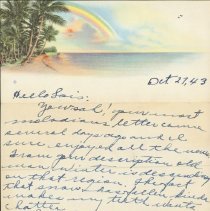 Oct 27, 43
Hello Lois:
Yowsah! your most
melodious letter came
several days ago and I
sure enjoyed all the news
From your description old
man winter is descending
on that region. The fact
that snow has fallen
makes my teeth
chatter